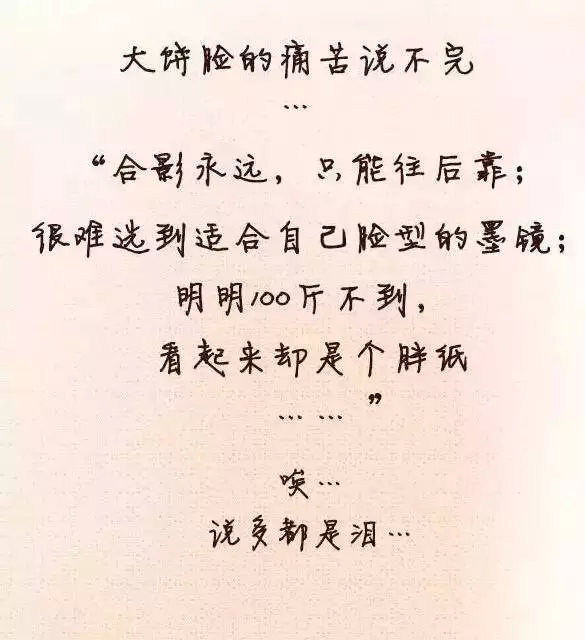 大饼脸的痛苦说不完
…
“合影永远，只能往后靠；
很难选到适合自己脸型的墨镜；
明明100斤不到，
看起来却是个胖纸
……”
唉…
说多都是泪…